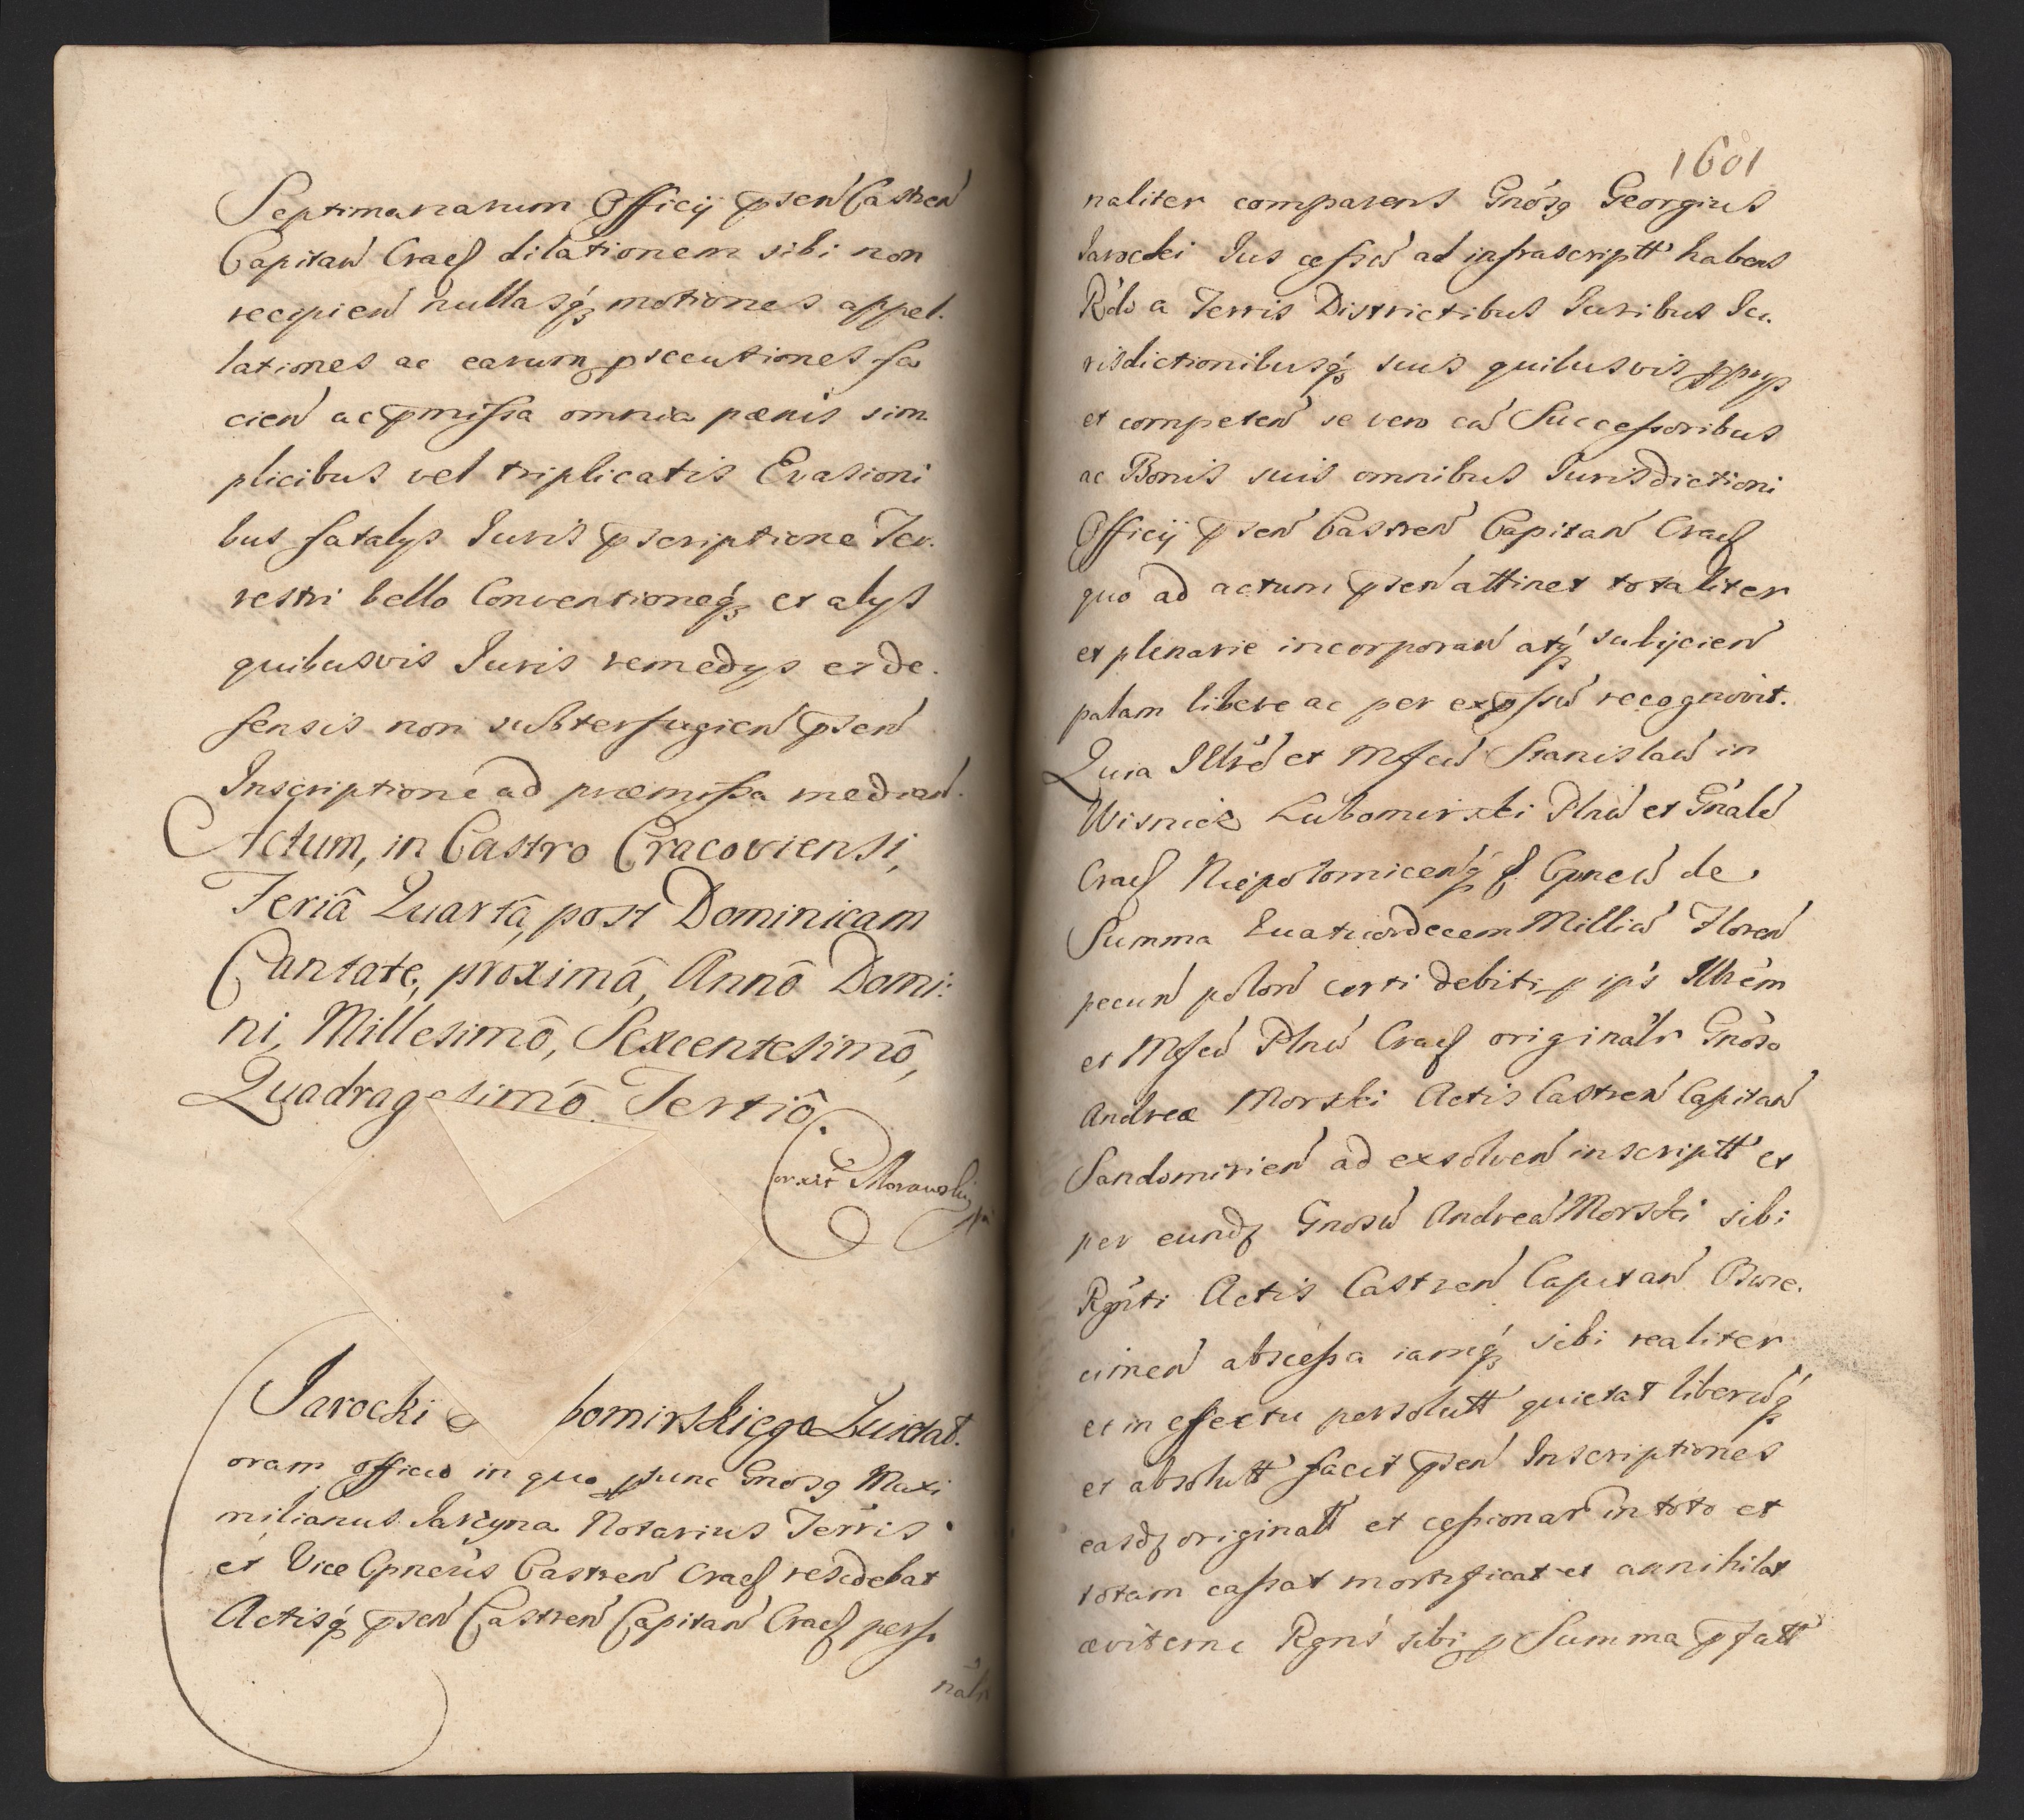 Septimanarum Officij psen Castren
Capitan Cracẞ dilationem sibi non
recipien nullasq motiones appel.
lationes ac earum psecutiones fa
cien ac pmissa omnia pœnis sim
plicibus vel triplicatis Evasioni
bus fatalys Juris pscriptione Ter.
restri bello Conventioneq et alys
quibusvis Juris remedys et de.
fensis non subterfugien psen
Inscriptione ad præmissa median.
Actum, in Castro Cracoviensi,
Feriâ Quartâ, post Dominicam
Cantate, proximâ, Annô Domi:
ni, Millesimô, Sexcentesimô,
Quadragesimô Tertiô.
Corexit Morawski
Jarocki bomirskiego Quietat.
oram officio in quo ptunc Gnosq Maxi
milianus Jarzyna Notarius Terris
et Vice Gpneris Castren Cracẞ residebat
Actisq psen Castren Capitan Cracẞ perso
nalr
1601
naliter comparens Gnosq Georgius
Jarocki Jus cessu ad infrascriptt habens
Rdo a Terris Districtibus Juribus Ju.
risdictionibusq suis quibusvis pprys
et competen se vero cu Successoribus
ac Bonis suis omnibus Jurisdictioni
Officij psen Castren Capitan Cracẞ
quo ad actum psen attinet totaliter
et plenarie incorporan atq subijcien
palam libere ac per expssu recognovit.
Quia Illre et Mfcu Stanislau in
Wisnicz Lubomirski Plnu et Gnale
Cracẞ Niepolomicenq ẞ Gpneu de
Summa Quatuordecem Milliu Floren
pecun polon certi debiti p ips Illrem
et Mfcu Plnu Cracẞ originalr Gnoso
Andreæ Morski Actis Castren Capitan
Sandomirien ad exsolven inscriptt et
per eundz Gnosu Andrea Morski sibi
Rgnti Actis Castren Capitan Biece.
cimen abscessa iamq sibi realiter
et in effectu persolutt quietat liberuq
et absolutt facit psen Inscriptiones
easdz originatt et cessionar in toto et
totam cassat mortificat et annihilat
æviterne Rgns sibi p Summa pfatt